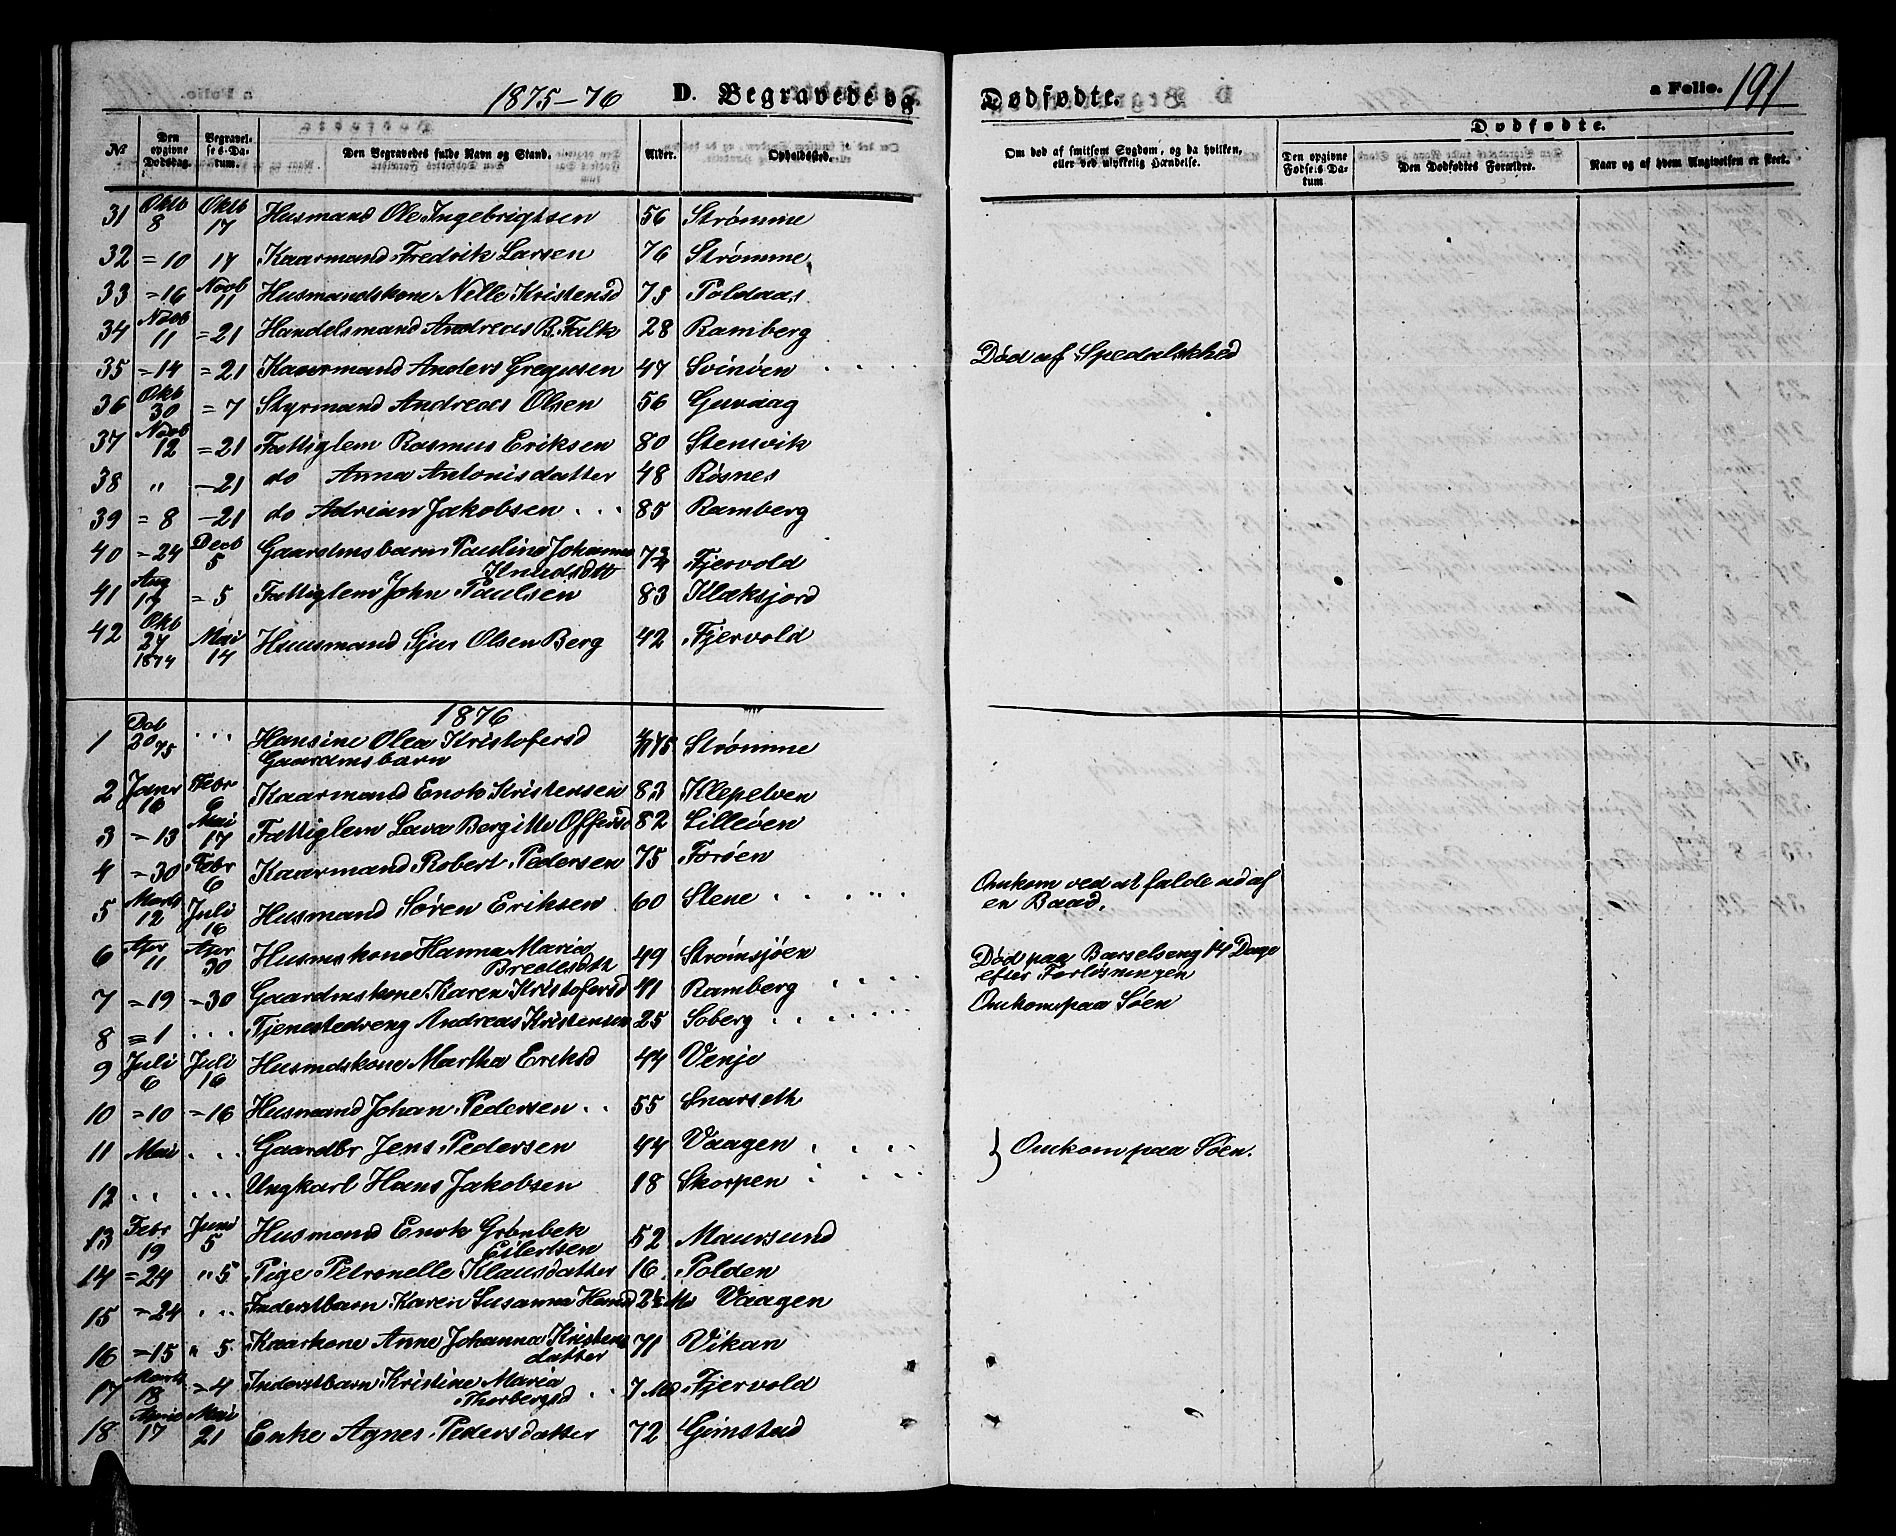 1875-76 D. Begravede og Dødfødte. a Folio. 191
Dødfødte.
№ Den opgivne Dødsdag. Begravelses-Datum. Den Begravedes fulde Navn og Stand. Alder. Opholdssted. Om død af smitsom Sygdom, og da hvilken, eller ved ulykkelig Hændelse. Den opgivne Fødsels-Datum Den Dødfødtes Forældre. Naar og af hvem Angivelsen er skeet.
31 Oktb 8 Oktb 17 Husmand Ole Ingebrigtsen 56 Strømme
32 = 10 17 Kaarmand Fredrik Larsen 76 Strømme
33 = 16 Novb 11 Husmandskone Nelle Kristensd 75 Poldaas
34 Novb 11 = 21 Handelsmand Andreas B. Falk 28 Ramberg
35 = 14 = 21 Kaarmand Anders Gregusen 47 Svinøen . . . . Død af Spedalskhed
36 Oktb 30 = 7 Styrmand Andreas Olsen 56 Guvaag
37 Novb 12 = 21 Fattiglem Rasmus Eriksen 80 Stensvik
38 " - 21 do Anna Antonisdatter 48 Røsnes
39 = 8 - 21 do Adrian Jakobsen . . . 85 Ramberg
40 = 24 Decb 5 Gaardmsbarn Pauline Johanna Knudsdtt 7 3/4 Fjervold
41 Aug 17 = 5 Fattiglem John Paulsen 83 Klaksjord
42 Okb 27 1874 Mai 14 Huusmand Sjur Olsen Berg 42 Fjervold
1876
1 Dcb 20 75 . . . Hansine Olea Kristofersd Gaardmsbarn 75 Strømme
2 Janr 16 Febr 6 Kaarmand Enok Kristensen 83 Klepelven
3 = 13 Mai 17 Fattiglem Lava Bergitte Offersd 82 Lilleøen
4 = 30 Febr 6 Kaarmand Robert Pedersen 75 Forøen
5 Marts 12 Juli 16 Husmand Søren Eriksen 60 Stene . . . . . Omkom ved at falde ud af en Baad.
6 Apr 11 Apr 30 Husmskone Hanna Maria Bredesdtt 49 Strømsjøen Død paa Barselseng 14 Dage efter Forløsningen
7 = 19 = 30 Gaardmskone Karen Kristofersd 41 Ramberg . . . Omkom paa Søen
8 = 1 . . . Tjenestedreng Andreas Kristensen 25 Soberg . . . . . .
9 Juli 6 Juli 16 Husmdskone Martha Eriksd 44 Venje
10 = 10 = 16 Husmand Johan Pedersen . . 55 Snarseth
11 Mai . . . Gaardbr Jens Pedersen 44 Vaagen . . . . } Omkom paa Søen.
12 . . . . . Ungkarl Hans Jakobsen 18 Skorpen . . . .
13 Febr 19 Juni 5 Husmand Enok Grønbek Eilertsen 52 Maursund
14 = 24 " 5 Pige Petronelle Klausdatter 16 Polden
15 = 24 . . Inderstbarn Karen Susanna Hansd 2½ Md Vaagen
16 = 15 " 5 Kaarkone Anne Johanna Kristensdatter 71 Vikan
17 Marts 18 = 4 Inderstbarn Kristine Maria Thorbergsd . . 7 Md Fjervold
18 April 17 Mai 21 Enke Agnes Pedersdatter 72 Gimstad